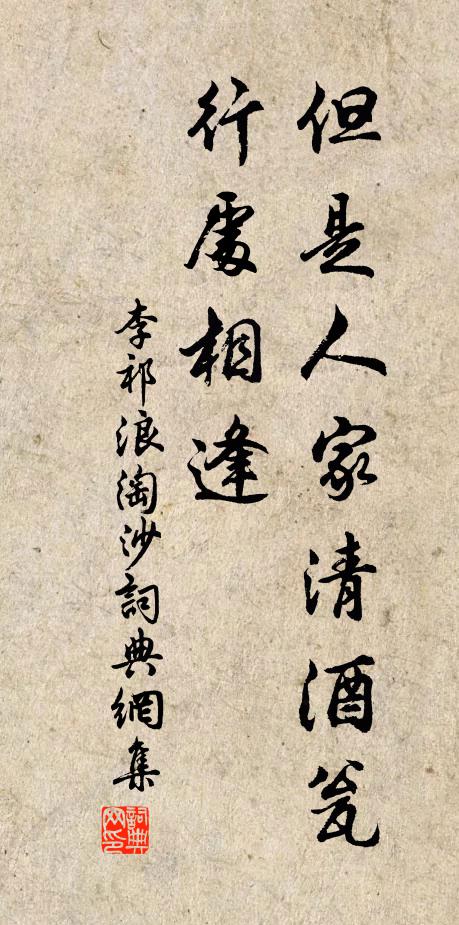 但是人家清酒瓮
行處相逢
李祁浪淘沙詞典網集
詞典
网印